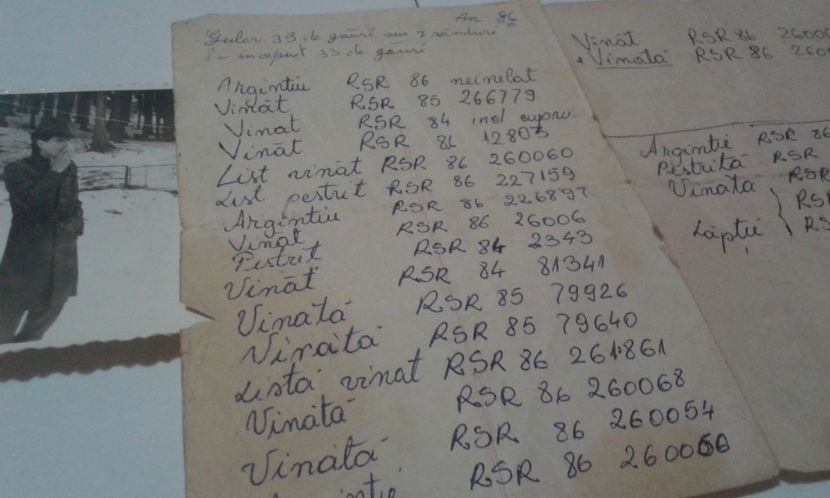 An 86
Guler 39 de găuri sau 7 rânduri
La inceput 33 de găuri
Argintiu RSR 86 neinelat
Vinăt RSR 85 266779
Vinat RSR 84 inel cupru
Vinăt RSR 86 12803
List vinăt RSR 86 260060
List pestrit RSR 86 227159
Argintiu RSR 86 226897
Vinat RSR 86 26006
Pestrit RSR 84 2343
Vinăt RSR 84 81341
Vinătă RSR 85 79926
Vinătă RSR 85 79640
Listă vinat RSR 86 261861
Vinătă RSR 86 260068
Vinătă RSR 86 260054
RSR 86 260060
Vinăt RSR 86 26006
Vinată RSR 86 260
Argintie RSR 86
Pestrită RSR
Vinată RSR
Lăptii RS
RS